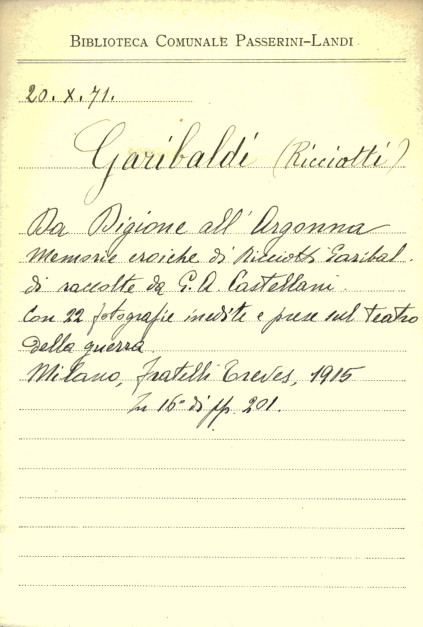 BIBLIOTECA COMUNALE PASSERINI-LANDI
20. X. 71.
Garibaldi (Ricciotti)
Da Digione all' Argonna
Memorie eroiche di Ricciotti Garibal-
di raccolte da G. A. Castellani.
Con 22 fotografie inedite e prese sul teatro
della guerra.
Milano, fratelli Treves, 1915
In 16° di pp. 201.